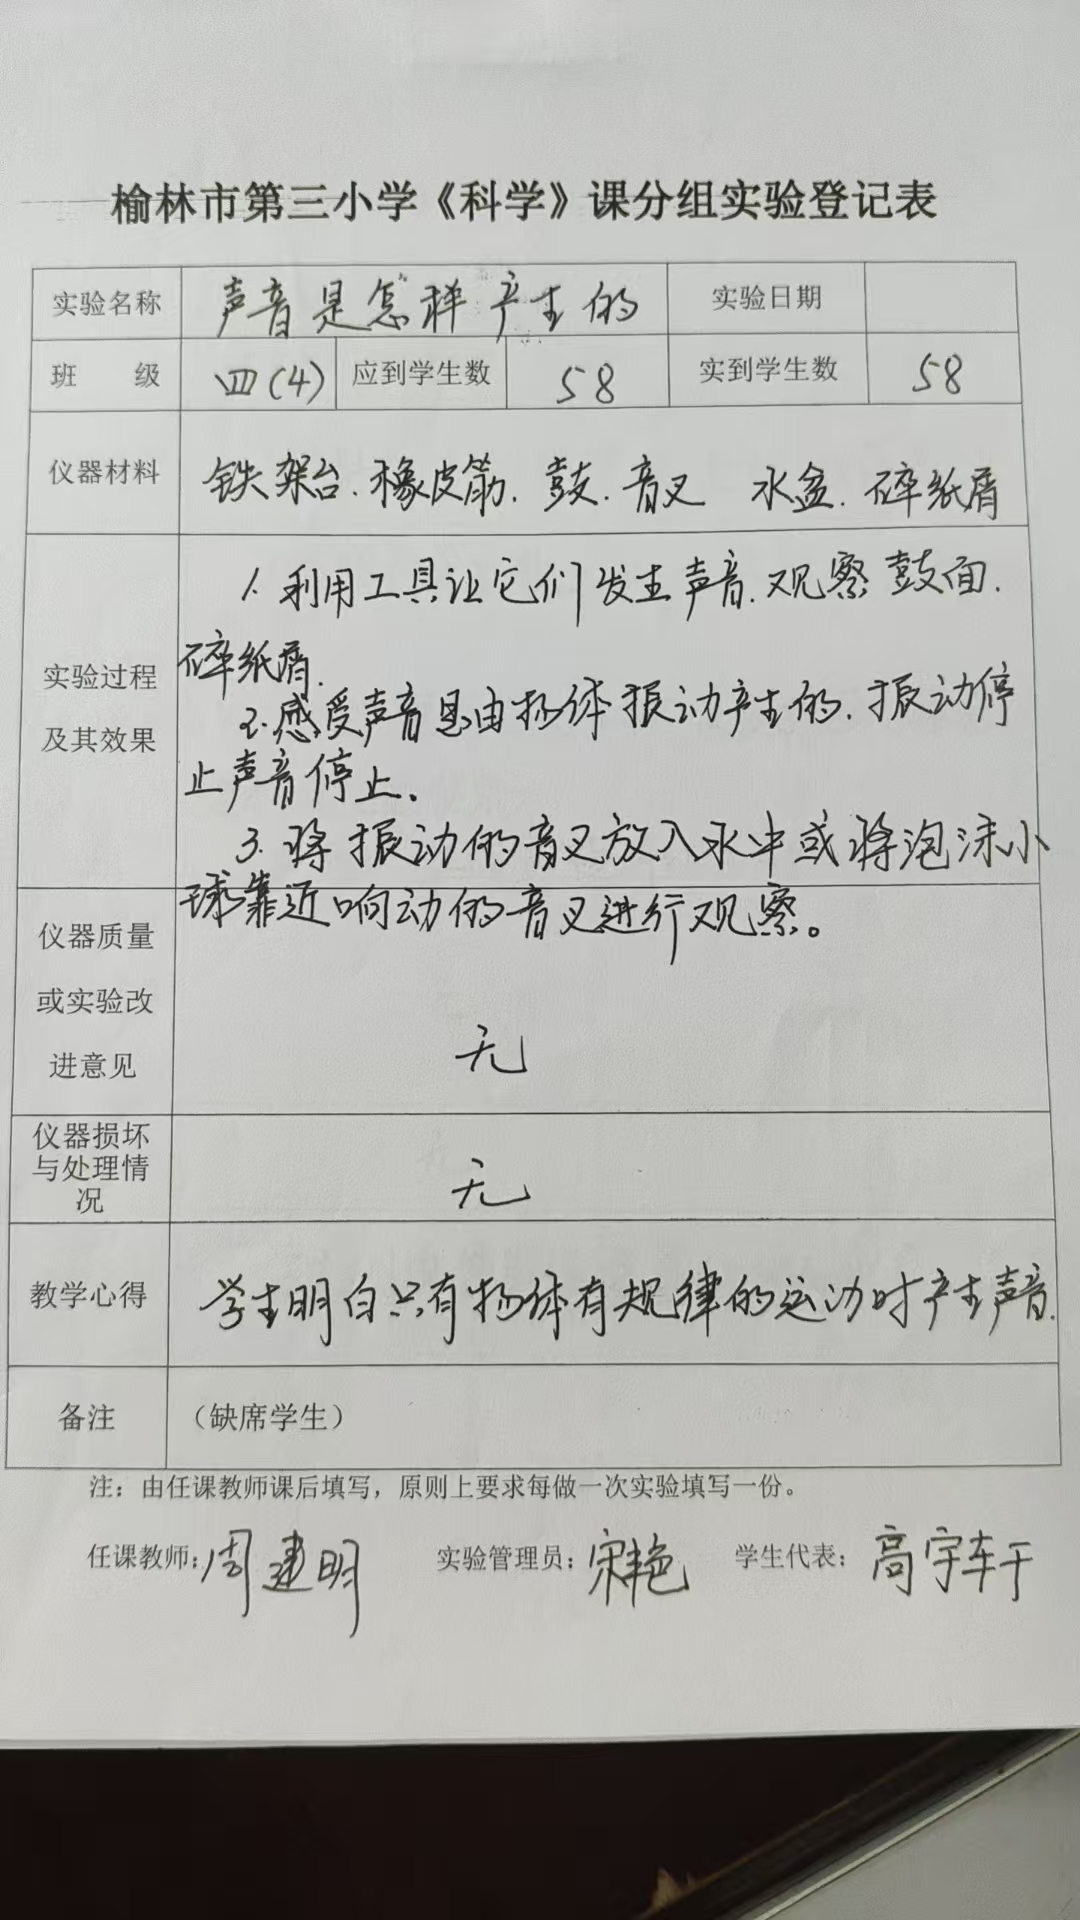 榆林市第三小学《科学》课分组实验登记表
实验名称 声音是怎样产生的 实验日期
班 级 四(4) 应到学生数 58 实到学生数 58
仪器材料 铁架台.橡皮筋.鼓.音叉 水盆.碎纸屑
实验过程
及其效果
1.利用工具让它们发生声音.观察鼓面.
碎纸屑.
2.感受声音是由物体振动产生的.振动停
止声音停止.
3.将振动的音叉放入水中或将泡沫小
球靠近响动的音叉进行观察。
仪器质量
或实验改
进意见
无
仪器损坏
与处理情
况
无
教学心得 学生明白只有物体有规律的运动时产生声音.
备注 (缺席学生)
注：由任课教师课后填写，原则上要求每做一次实验填写一份。
任课教师：周建明 实验管理员：宋艳 学生代表：高宇轩